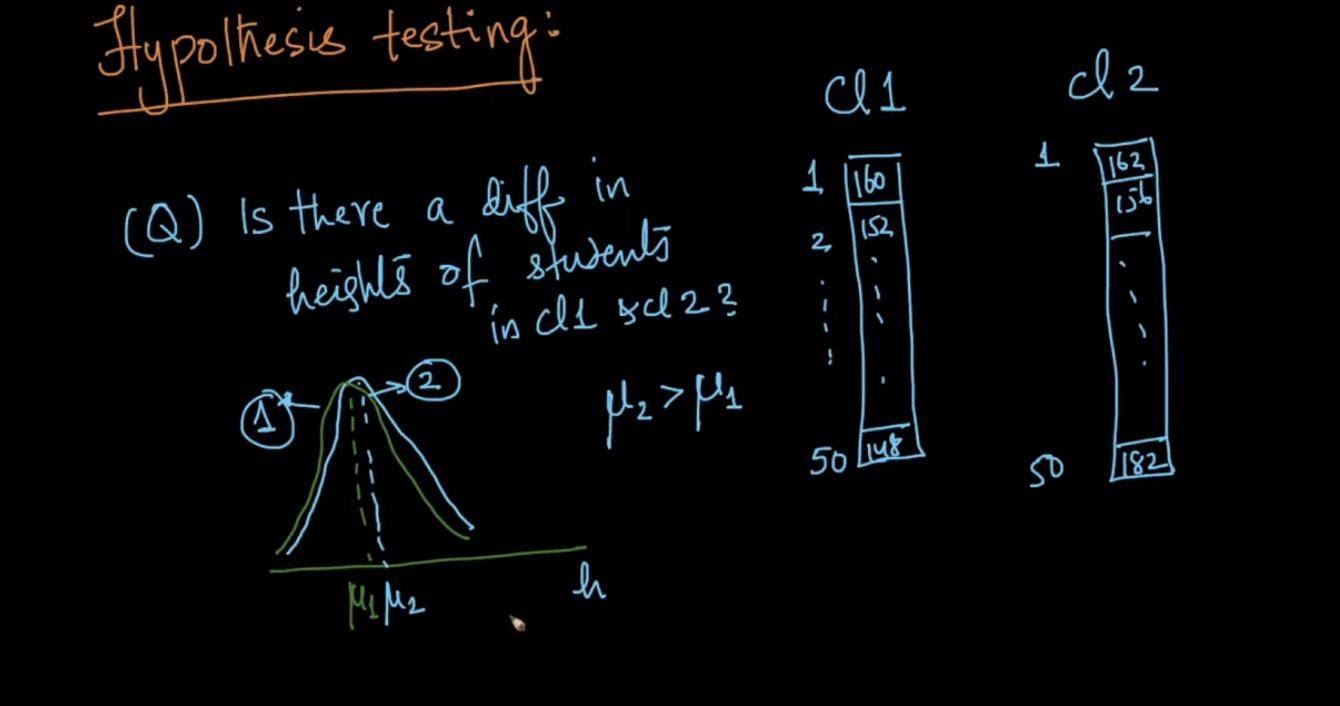 Hypothesis testing:
(Q) Is there a diff in
heights of students
in cl1 & cl2?
1
2
μ2 > μ1
μ1 μ2
h
cl1
1 160
2 152
50 148
cl2
1 162
156
50 182